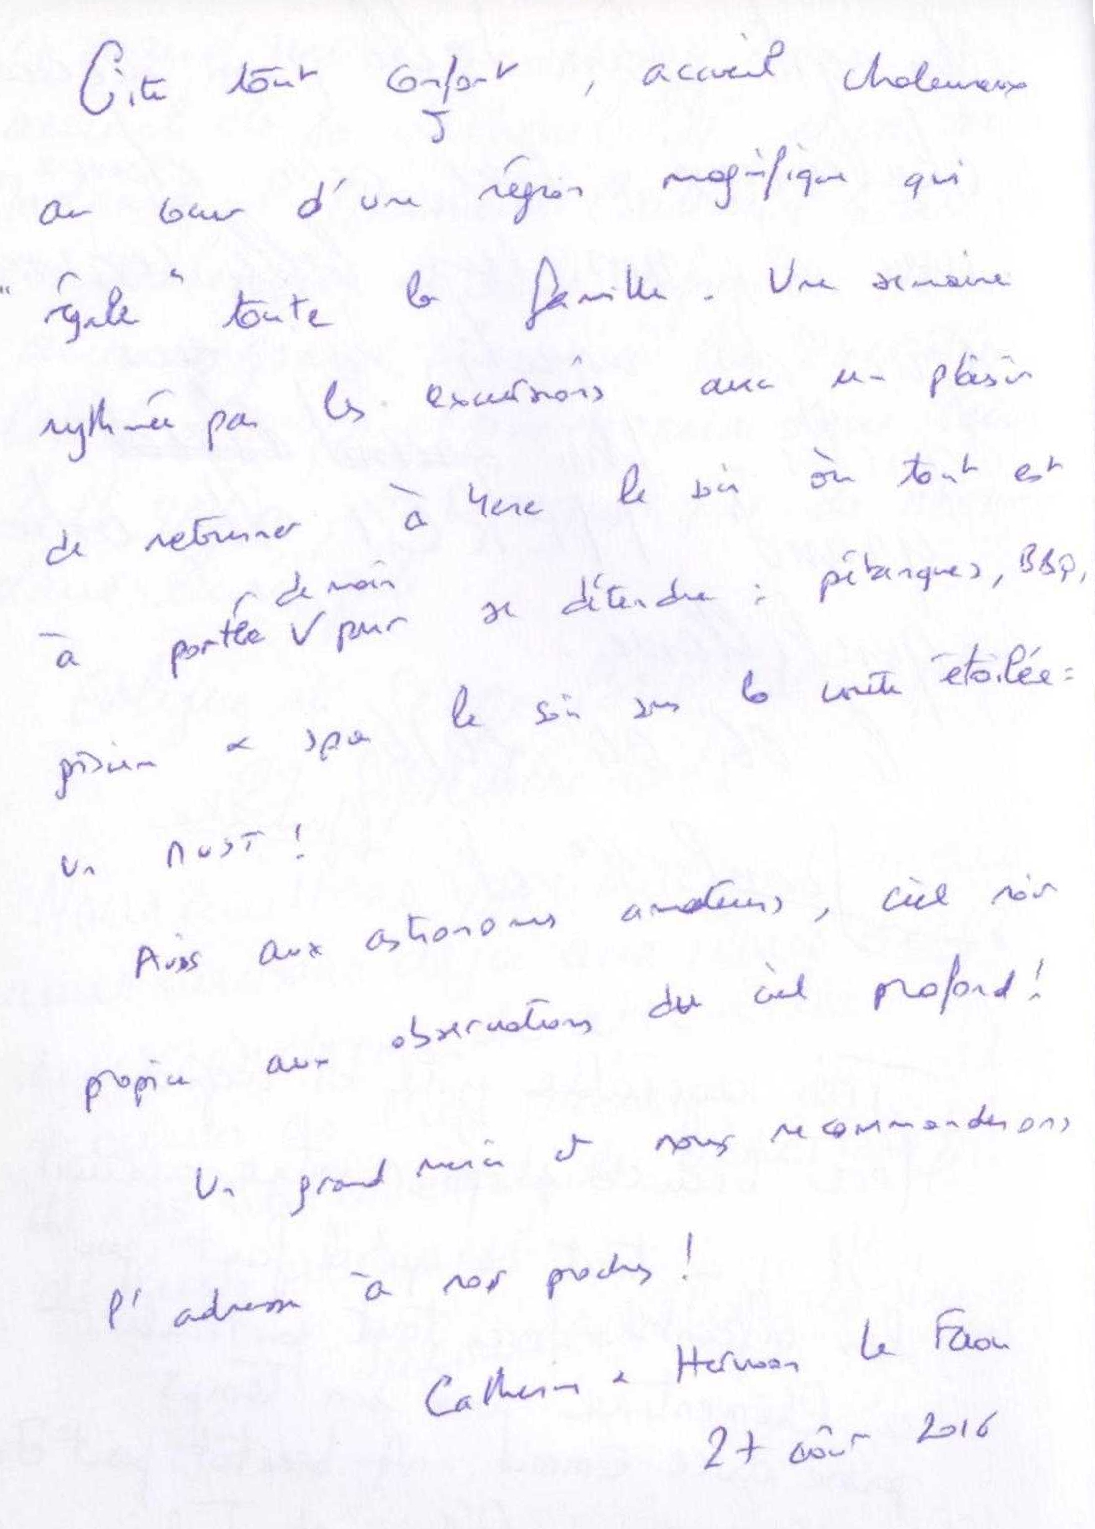 Gîte tout confort, accueil chaleureux
au cœur d'une région magnifique qui
"régale" toute la famille. Une semaine
rythmée par les excursions avec un plaisir
de retrouver à le soir où tout est
à portée de main pour se détendre : pétanques, BBQ,
piscine & spa le soir sous la voute étoilée :
un MUST !
Avis aux astronomes amateurs, ciel noir
propice aux observations du ciel profond !
Un grand merci et nous recommanderons
l'adresse à nos proches !
Catherine & Le Faou
27 août 2016